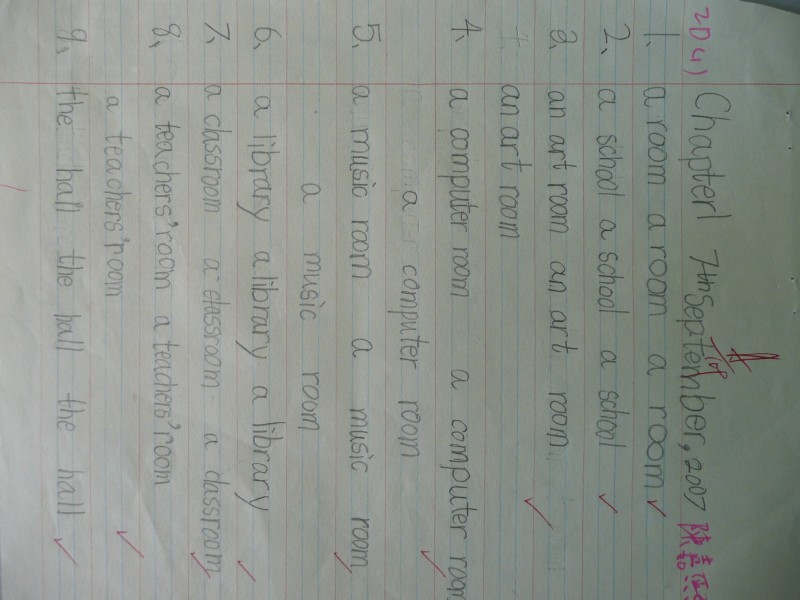 2D(4) Chapter1 7th September, 2007 陳
A
1. a room a room a room
2. a school a school a school
3. an art room an art room
an art room
4. a computer room a computer room
a computer room
5. a music room a music room
a music room
6. a library a library a library
7. a classroom a classroom a classroom
8. a teachers' room a teachers' room
a teachers' room
9. the hall the hall the hall